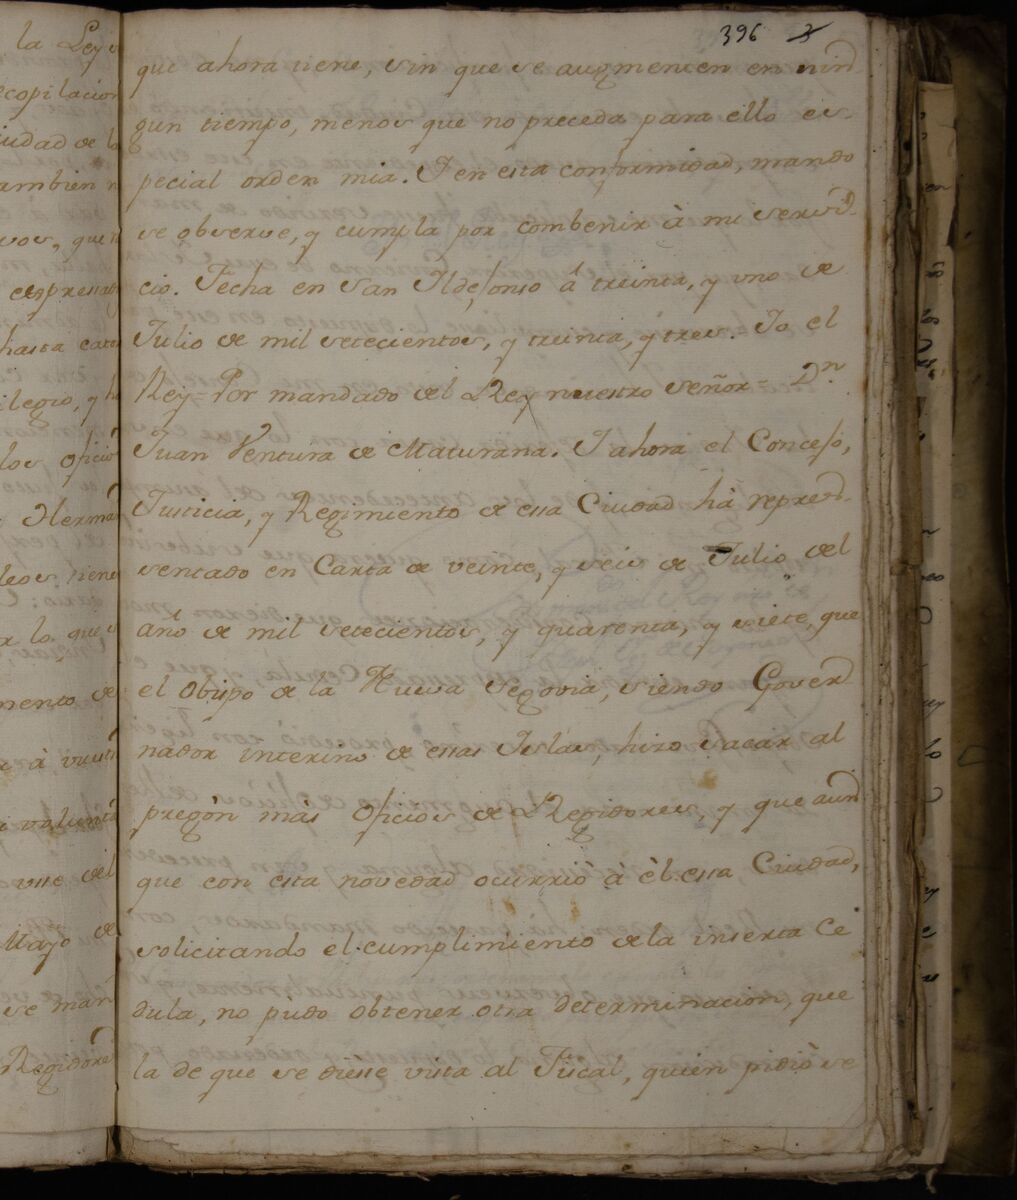 396 3
que ahora tiene, sin que se augmenten en nin=
gun tiempo, menos que no preceda para ello es-
pecial orden mia. I en esta conformidad, mando
se observe, y cumpla por combenir à mi servi=
cio. Fecha en San Ildefonso â treinta, y uno de
Julio de mil setecientos, y treinta, y tres. Io el
Rey= Por mandado del Rey nuestro Señor= Dn.
Juan Ventura de Maturana. I ahora el Concejo,
Justicia, y Regimiento de essa Ciudad hà repre=
sentado en Carta de veinte, y seis de Julio del
año de mil setecientos, y quarenta, y siete, que
el Obispo de la Nueva Segovia, siendo Gover=
nador interino de essas Islas, hizo sacar al
pregón màs Oficios de Regidores, y que aun=
que con esta novedad ocurriò à èl essa Ciudad,
solicitando el cumplimiento de la inserta Ce
dula, no pudo obtener otra determinacion, que
la de que se diesse vista al Fiscal, quien pidiò se
la Ley
ecopilacion
iudad de
ambien
hasta
ilegio, y
los
lo que
mento de
viste del
Mayo de
se man
Regidores